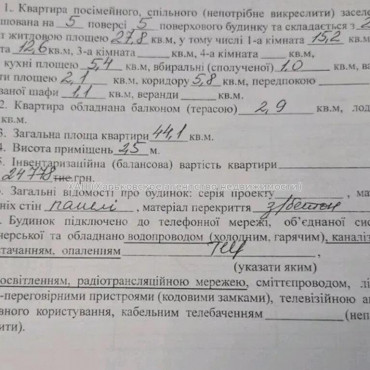 1. Квартира посімейного, спільного (непотрібне викреслити) засе
шована на 5 поверсі 5 поверхового будинку та складається з 2
з житловою площею 27,8 кв.м, у тому числі 1-а кімната 15,2 кв.
та 12,6 кв.м, 3-а кімната кв.м, 4-а кімната кв.м,
кухні площею 5,4 кв.м, вбиральні (сполученої) 1,0 кв.м, ва
ти площею 2,1 кв.м, коридору 5,8 кв.м, передпокою
ваної шафи 1,1 кв.м, веранди кв.м.
2. Квартира обладнана балконом (терасою) 2,9 кв.м, лод
кв.м.
3. Загальна площа квартири 44,1 кв.м.
4. Висота приміщень 2,5 м.
5. Інвентаризаційна (балансова) вартість квартири
24778 тис.грн.
. Загальні відомості про будинок: серія проекту , ма
ніх стін панелі , матеріал перекриття з/бетон
. Будинок підключено до телефонної мережі, об'єднаної сис
нерської та обладнано водопроводом (холодним, гарячим), каналіз
стачанням, опаленням ТЕЦ
(указати яким)
освітленням, радіотрансляційною мережею, сміттєпроводом, лі
-переговорними пристроями (кодовими замками), телевізійною ан
ваного користування, кабельним телебаченням (неп
ити).